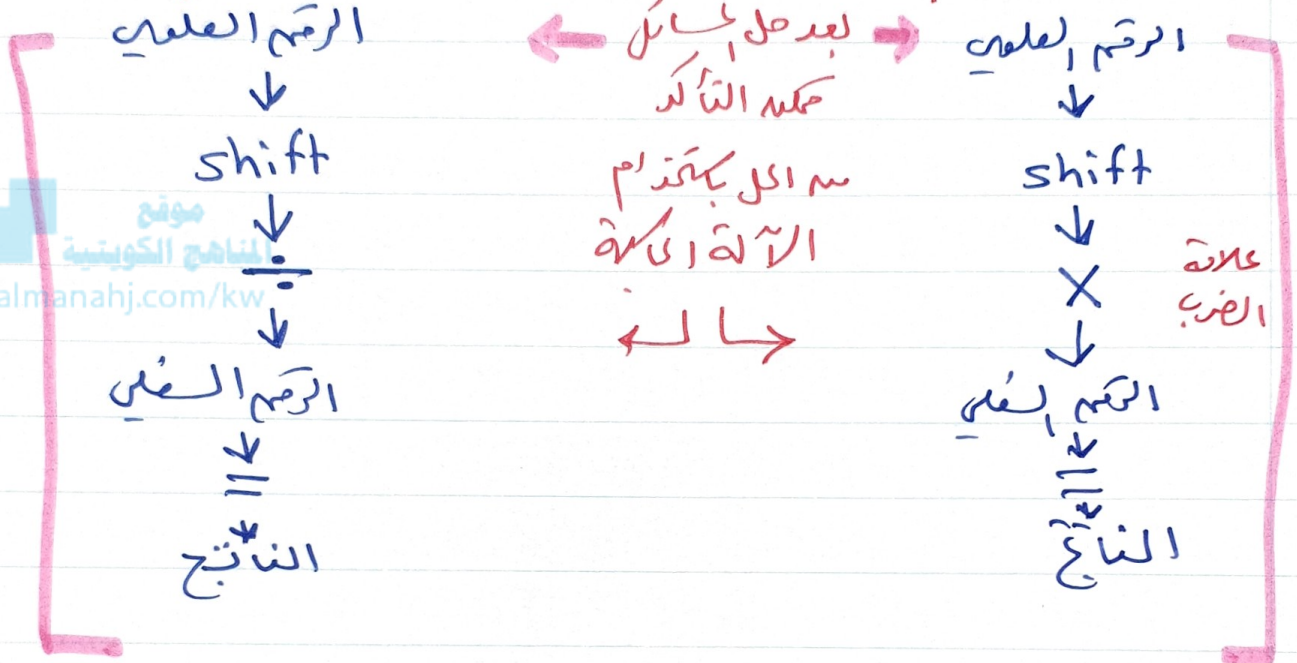 الرقم العلوي
↓
shift
↓
×
↓
الرقم السفلي
↓
=
↓
الناتج
علامة
الضرب
بعد حل المسائل
يمكن التأكد
من الحل باستخدام
الآلة الحاسبة
الرقم العلوي
↓
shift
↓
÷
↓
الرقم السفلي
↓
=
↓
الناتج
موقع
المناهج الكويتية
almanahj.com/kw